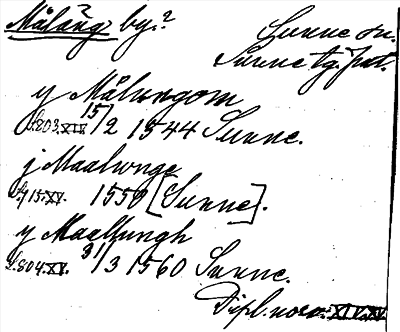 Målång by?
Sunne sn.
Sunne tg. Jtl.
y Målungom
S. 803. XIV. 15/2 1544 Sunne.
j Maalwnge
S. 715. XV. 1550 [Sunne].
y Maellungh
S. 804. XV. 31/3 1560 Sunne.
Dipl. norv. XIV. XV.